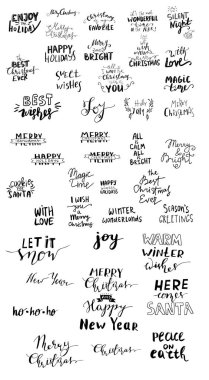 ENJOY
the
HOLIDAY
Merry Christmas
Christmas
FAVORITE
it's the most
WONDERFUL
time
SILENT
Night
THE
BEST
CHRISTMAS
EVER
HAPPY
HOLIDAYS
Merry
and
BRIGHT
CHRISTMAS
with
Love
Sweet
wishes
all I
want for
Christmas
is
YOU
MAGIC
time
BEST
wishes
Joy
Holly
Jolly
Merry
Christmas
MERRY
CHRISTMAS
MERRY
CHRISTMAS
ALL
is
CALM
ALL
is
BRIGHT
Merry
&
Bright
HAPPY
NEW YEAR
HAPPY
NEW YEAR
cookies
for
SANTA
Magic
Time
HAPPY
HOLIDAYS
the
Best
Christmas
Ever
WITH
LOVE
I WISH
you a
Merry
Christmas
WINTER
WONDERLAND
SEASON'S
GREETINGS
LET IT
Snow
joy
WARM
WINTER
wishes
New Year
MERRY
Christmas
HERE
comes
SANTA
ho-ho-ho
Happy
New Year
Merry
Christmas
Christmas
PEACE
on
Earth